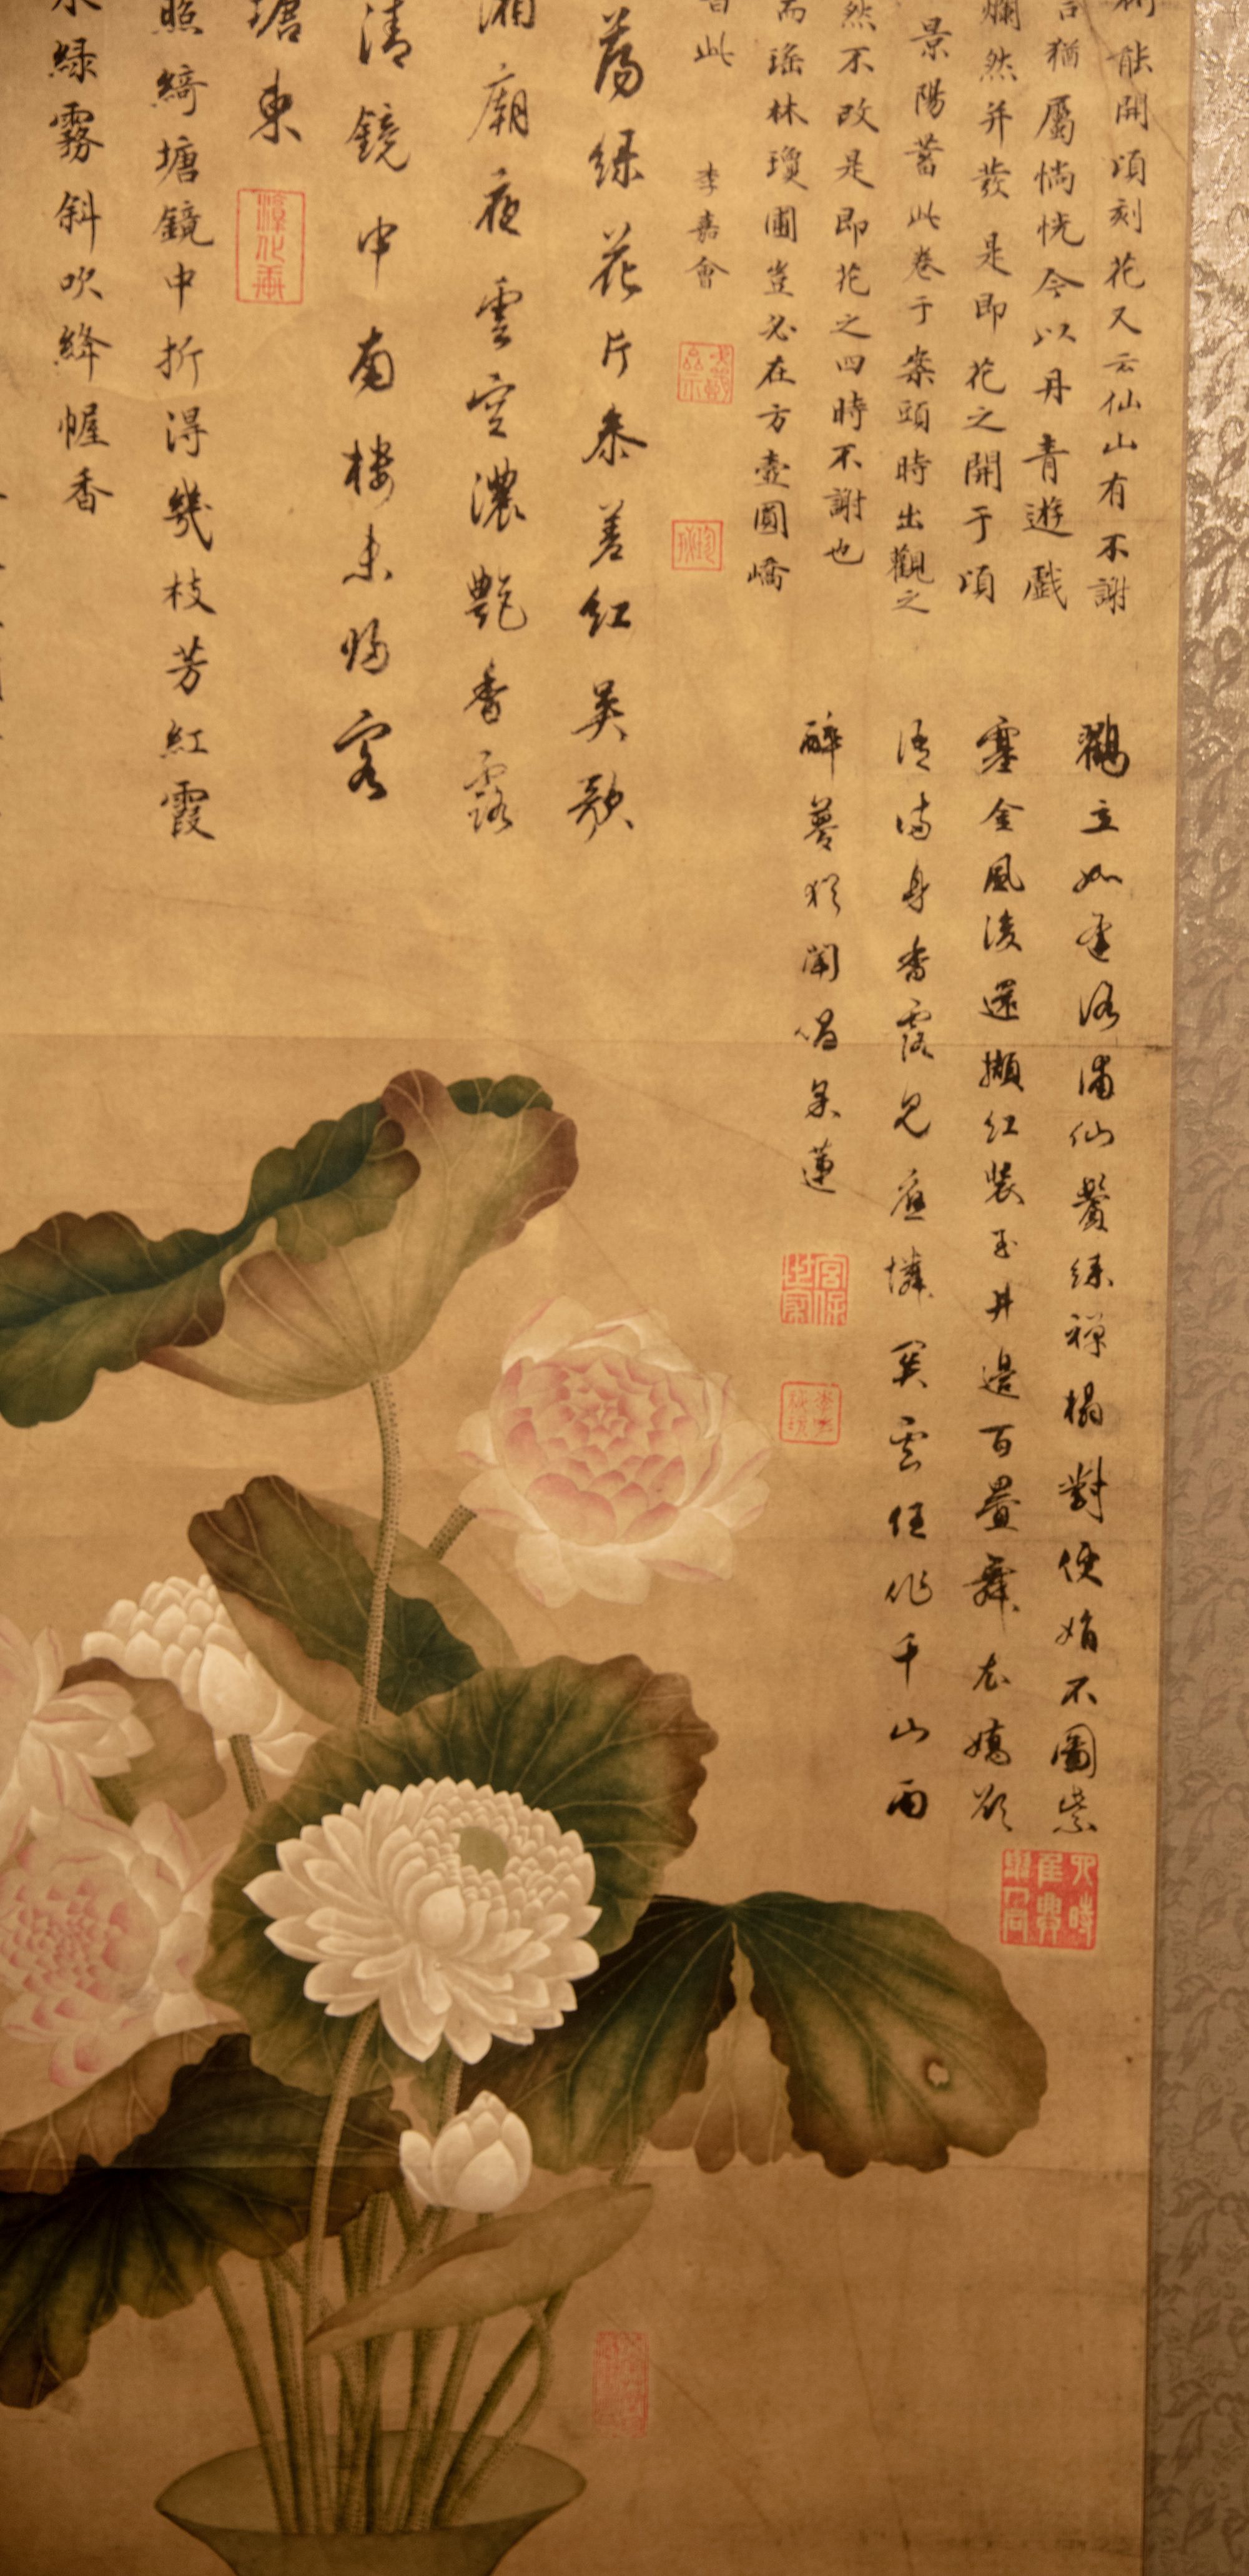 能開頃刻花又云仙山有不謝
猶屬惝恍今以丹青遊戲
爛然并發是即花之開于頃
景陽蓄此卷于案頭時出觀之
然不改是即花之四時不謝也
而瑤林瓊圃豈必在方壺圓嶠
此
李嘉會
蕩綠花片參差紅吳歌
湘廟夜雲空濃艷香露
清鏡中南樓未歸客
塘東
照綺塘鏡中折得幾枝芳紅霞
綠霧斜吹絳幄香
立如逢洛浦仙鬢絲禪榻對便娟不圖紫
塞金風凌還擷紅裝玉井邊百疊舞衣嬌欲
語滿身香露見應憐閑雲任作千山雨
醉夢猶聞唱采蓮